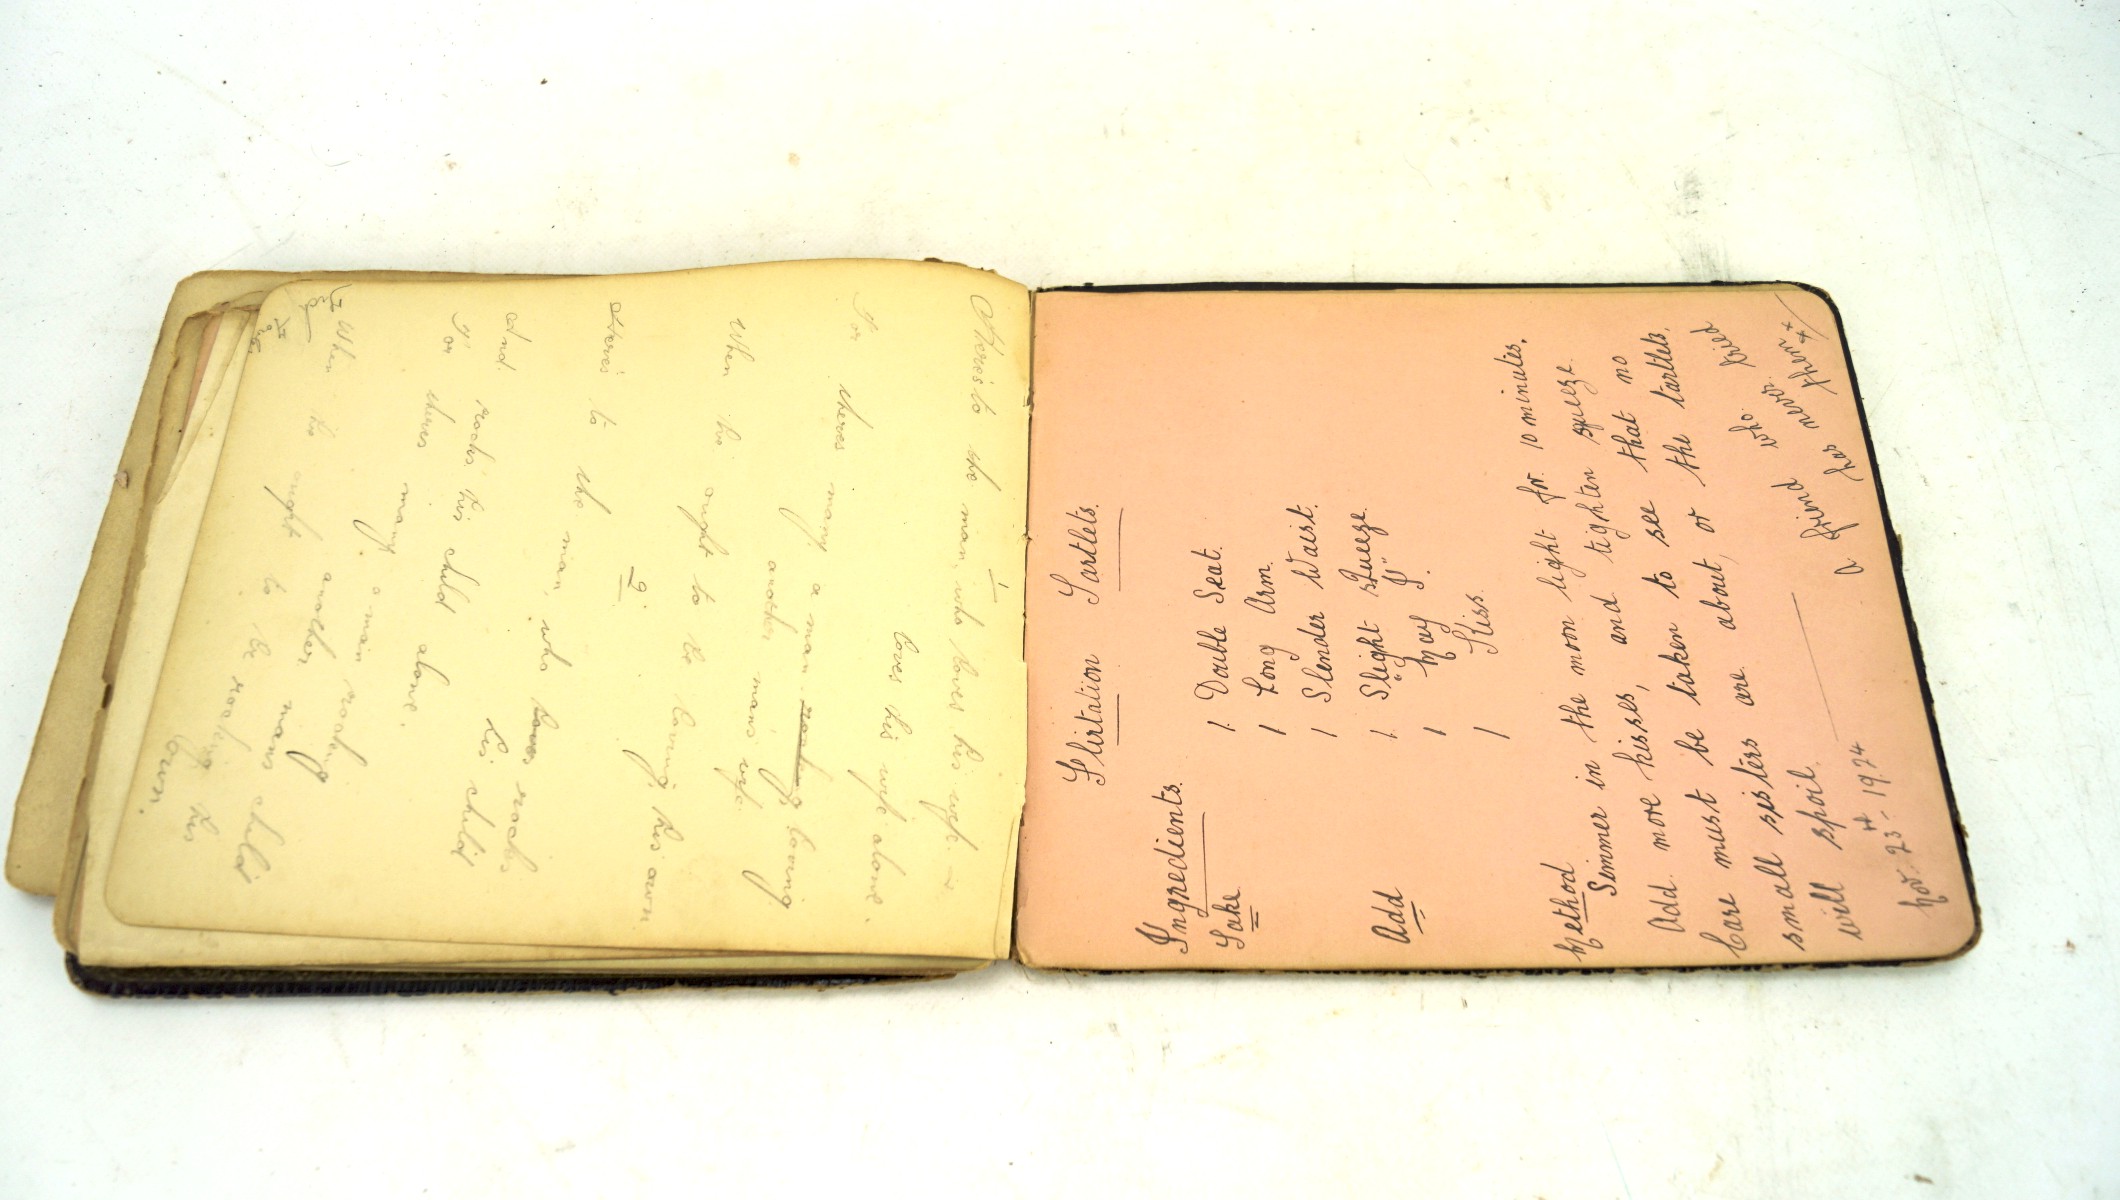 1
Heres to the man who loves his wife –
loves his wife alone.
For theres many a man rocking loving
another man's wife
When he ought to be loving his own
2
Heres to the man, who loves rocks
his child
And rocks his child alone.
For theres many a man rocking
another mans child
When he ought to be rocking his
own.
Flirtation Tartlets.
Ingredients.
Take 1 Double Seat.
1 Long Arm.
1 Slender Waist.
Add 1 Slight Squeeze
1 May "
1 Kiss.
Method
Simmer in the moon light for 10 minutes.
Add more kisses, and tighten squeeze
Care must be taken to see that no
small sisters are about, or the tartlets
will spoil.
A friend who tried
has never
Nov. 23rd 1924